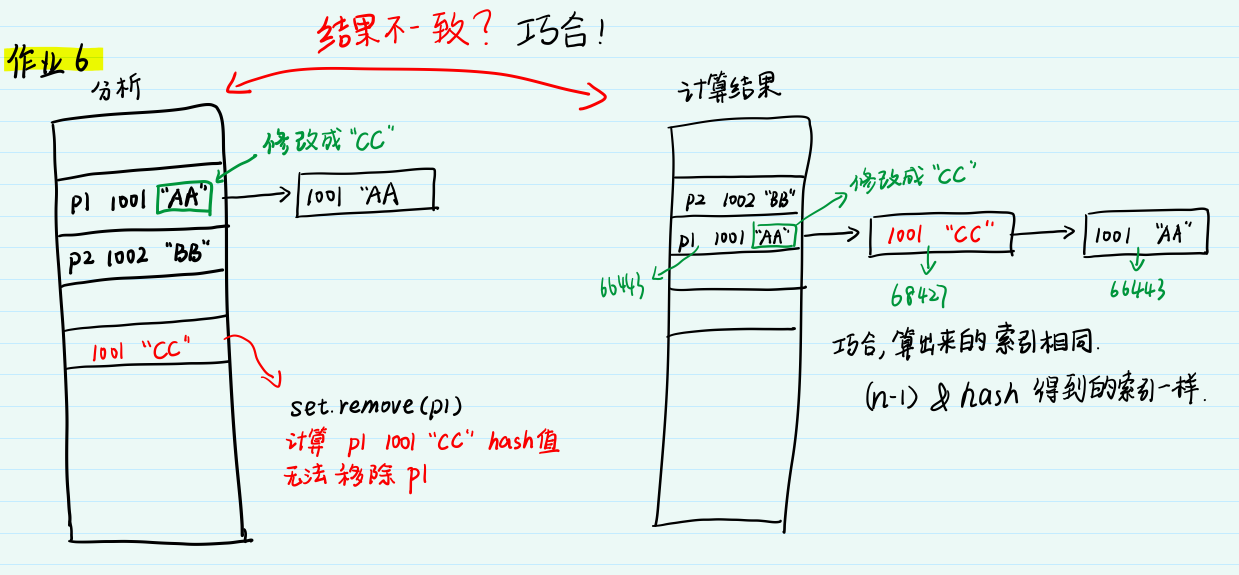 结果不一致？ 巧合！
作业6
分析
修改成"CC"
p1 1001 "AA"
1001 "AA
p2 1002 "BB"
1001 "CC"
set.remove(p1)
计算 p1 1001 "CC" hash值
无法移除 p1
计算结果
修改成"CC"
p2 1002 "BB"
p1 1001 "AA"
1001 "CC"
1001 "AA"
66443
68427
66443
巧合,算出来的索引相同.
(n-1) & hash 得到的索引一样.